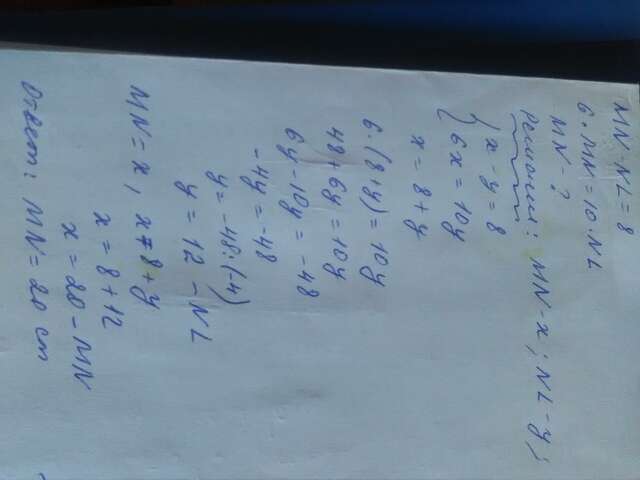 MN-NL=8
6·MN=10·NL
MN-?
Решения: MN-x; NL-y;
{ x-y=8
{ 6x=10y
x=8+y
6·(8+y)=10y
48+6y=10y
6y-10y=-48
-4y=-48
y=-48:(-4)
y=12-NL
MN=x, x=8+y
x=8+12
x=20-MN
Ответ: MN=20 cm